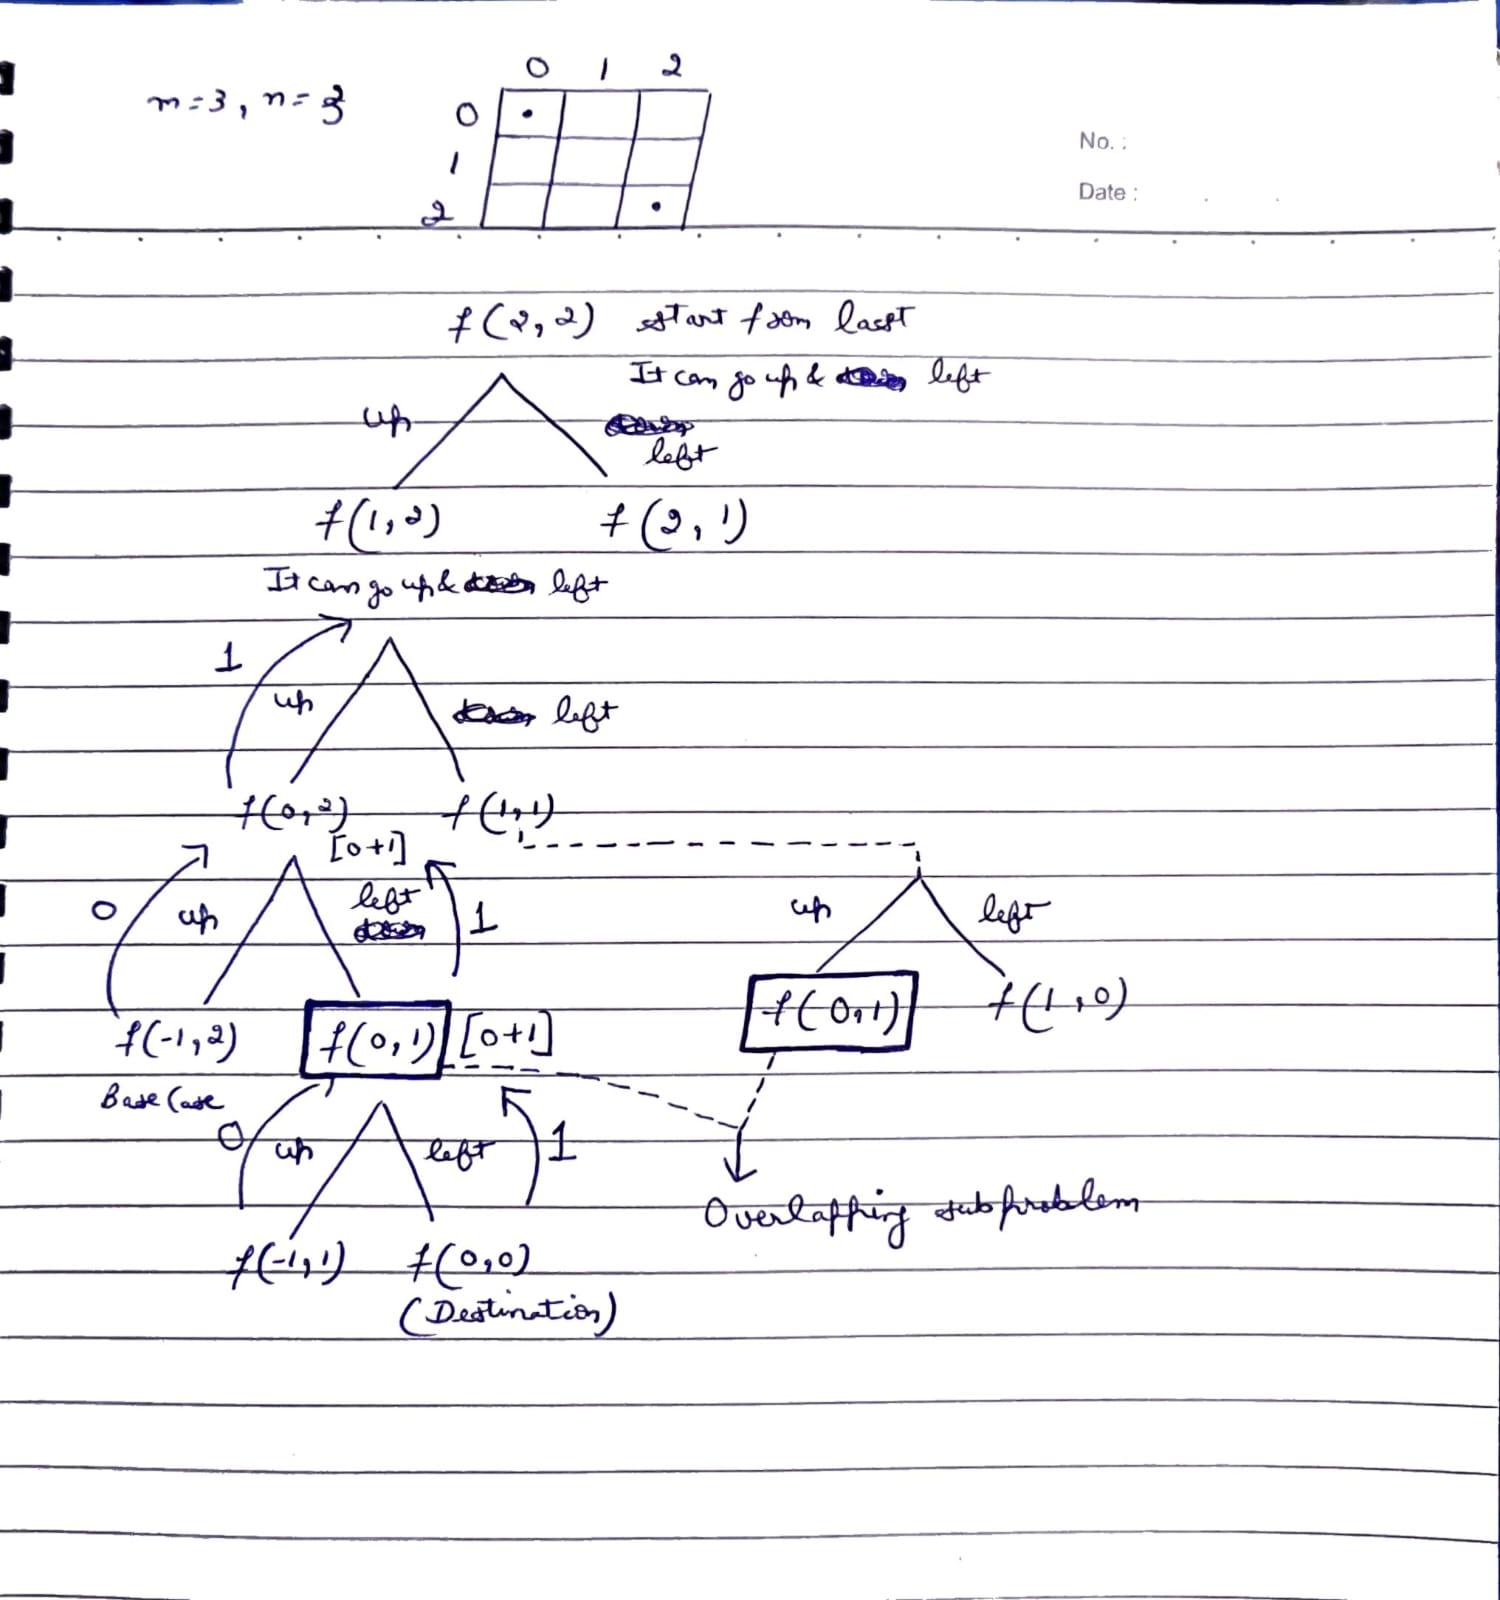 0 1 2
m=3, n=3
0
1
2
No. :
Date :
f(2,2) start from last
It can go up & left
up
left
f(1,2) f(2,1)
It can go up & left
1
up left
f(0,2) f(1,1)
[0+1]
0 up left 1 up left
f(-1,2) f(0,1) [0+1] f(0,1) f(1,0)
Base Case
0 up left 1
Overlapping subproblem
f(-1,1) f(0,0)
(Destination)